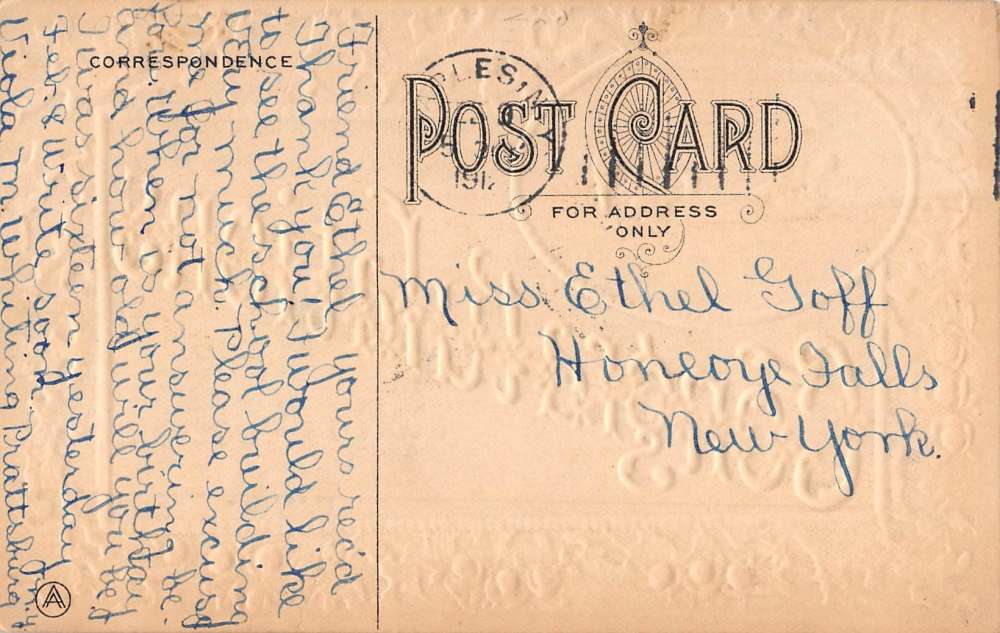 CORRESPONDENCE
Friend Ethel, yours rec'd
Thank you! I would like
to see the school building
very much. Please excuse
me for not answering be-
fore. When is your birthday
and how old will you be?
I was sixteen yesterday,
Feb. 8 Write soon.
Viola M. Whiting Prattsburg N.Y.
PLES, N
1912
POST CARD
FOR ADDRESS
ONLY
Miss Ethel Goff
Honeoye Falls
New York.
A